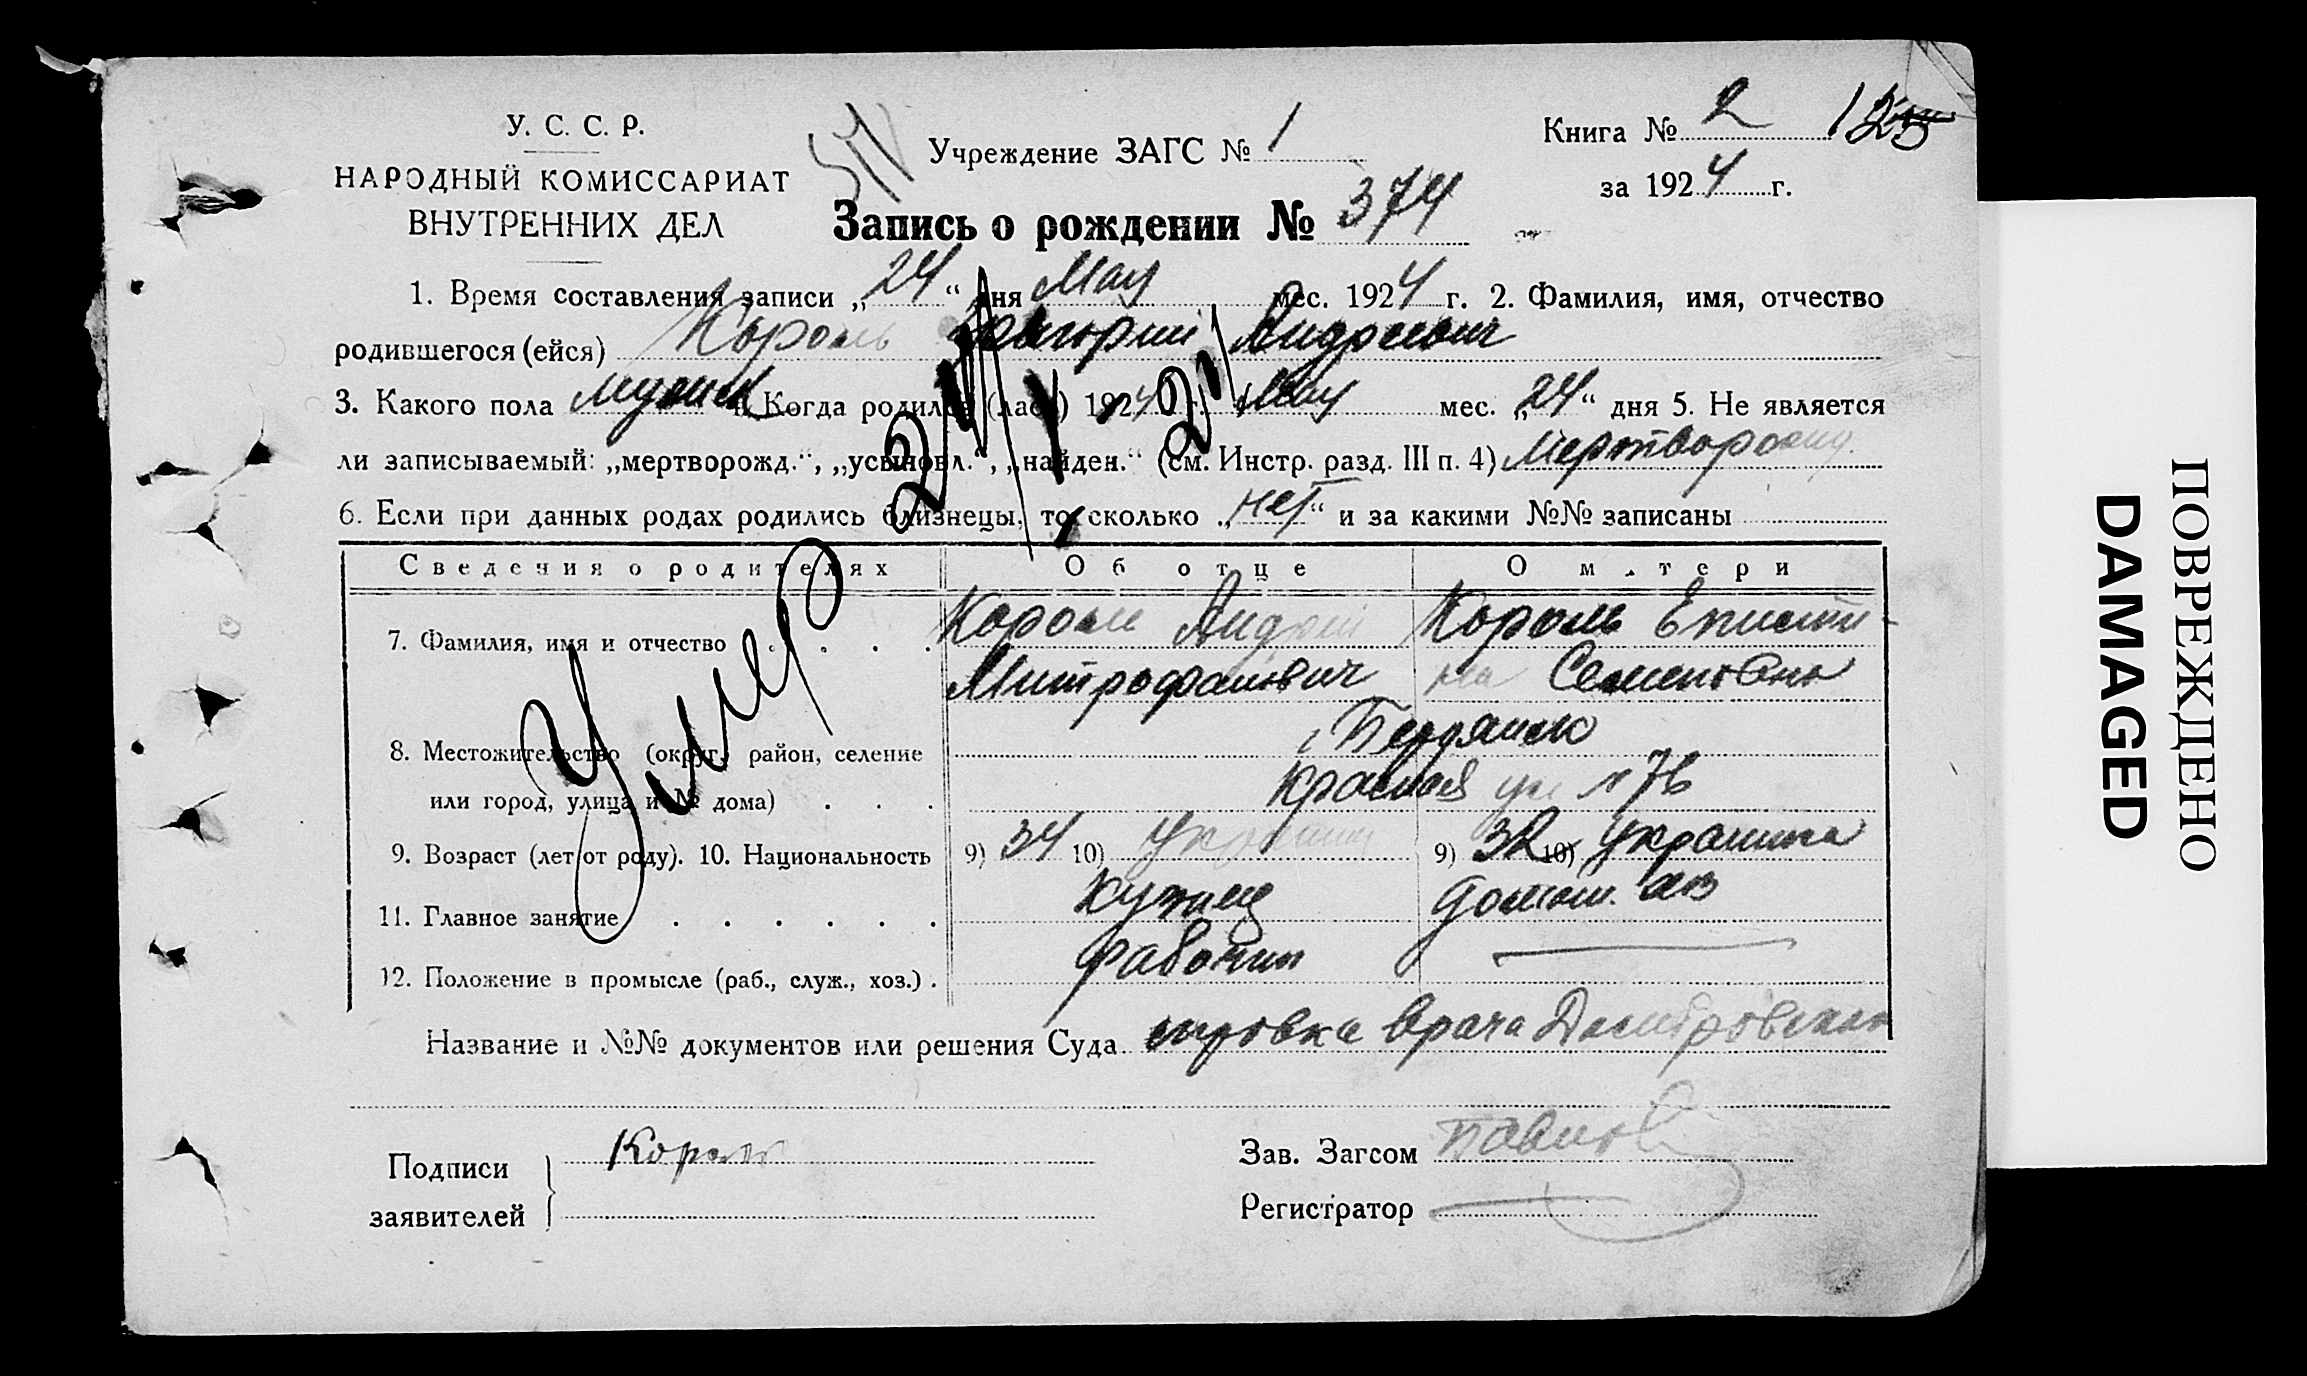 У. С. С. Р.
НАРОДНЫЙ КОМИССАРИАТ
ВНУТРЕННИХ ДЕЛ
Учреждение ЗАГС № 1
Книга № 2
за 1924 г.
Запись о рождении № 374
1. Время составления записи „24“ дня Мая мес. 1924 г. 2. Фамилия, имя, отчество
родившегося (ейся) Король Григорий Андреевич
3. Какого пола мужск 4. Когда родился (лась) 1924 г. Мая мес. „24“ дня 5. Не является
ли записываемый: „мертворожд.“, „усыновл.“, „найден.“ (см. Инстр. разд. III п. 4) Мертворожд.
6. Если при данных родах родились близнецы, то сколько „нет“ и за какими №№ записаны
Умер
Сведения о родителях Об отце О матери
7. Фамилия, имя и отчество . . . . Король Андрей Король Еписти-
Митрофанович на Семеновна
8. Местожительство (округ, район, селение г. Бердянск
или город, улица и № дома) . . . Красная ул № 76
9. Возраст (лет от роду). 10. Национальность 9) 34 10) Украинец 9) 32 10) Украинка
11. Главное занятие . . . . . . Кузнец домаш. хоз
12. Положение в промысле (раб., служ., хоз.) . рабочий
Название и №№ документов или решения Суда справка врача Дмитровского
Подписи
заявителей
Король
Зав. Загсом Павлов
Регистратор
ПОВРЕЖДЕНО
DAMAGED